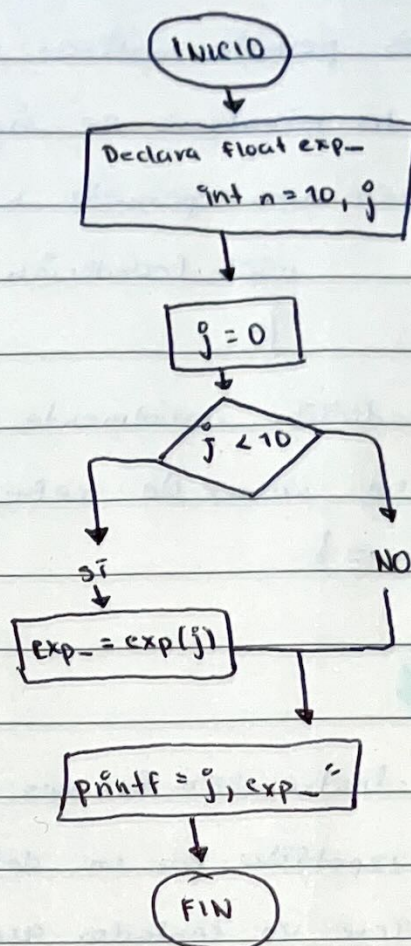 INICIO
Declara float exp_
int n = 10, j
j = 0
j < 10
SI
NO
exp_ = exp(j)
printf = j, exp_"
FIN